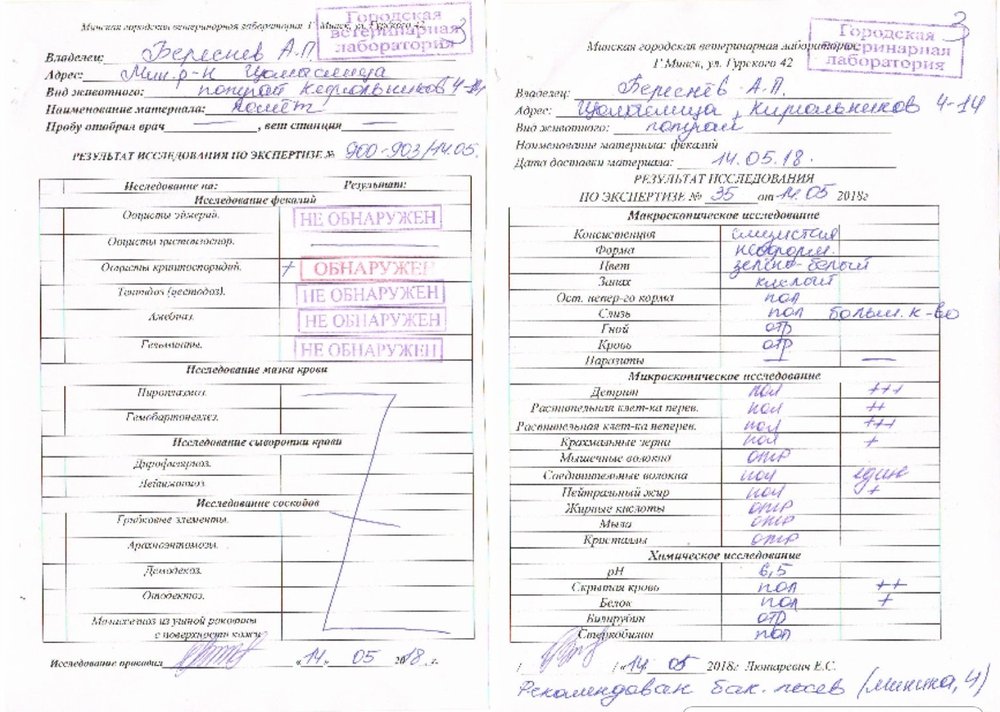 Минская городская ветеринарная лаборатория Г. Минск, ул. Гурского 42
Городская
ветеринарная
лаборатория
3
Владелец: Береснев А.П.
Адрес: Мин. р-н Цомаслица
Вид животного: попугай 4-14
Наименование материала: помёт
Пробу отобрал врач — , вет станции —
РЕЗУЛЬТАТ ИССЛЕДОВАНИЯ ПО ЭКСПЕРТИЗЕ № 900-903/14.05.
Исследование на: Результат:
Исследование фекалий
Ооцисты эймерий. НЕ ОБНАРУЖЕН
Ооцисты цистоизоспор. —
Ооцисты криптоспоридий. + ОБНАРУЖЕН
Таниидоз (цестодоз). НЕ ОБНАРУЖЕН
Амебиаз. НЕ ОБНАРУЖЕН
Гельминты. НЕ ОБНАРУЖЕН
Исследование мазка крови
Пироплазмоз.
Гемобартонеллез.
Исследование сыворотки крови
Дирофиляриоз.
Лейшманиоз
Исследование соскобов
Грибковые элементы.
Арахноэнтомозы.
Демодекоз.
Отодектоз.
из ушной раковины
с поверхности кожи
Исследование проводил «14» 05 2018 г.
Минская городская ветеринарная лаборатория
Г Минск, ул. Гурского 42
Городская
ветеринарная
лаборатория
3
Владелец: Береснёв А.П.
Адрес: 4-14
Вид животного: попугай
Наименование материала: фекалий
Дата доставки материала: 14.05.18.
РЕЗУЛЬТАТ ИССЛЕДОВАНИЯ
ПО ЭКСПЕРТИЗЕ № 35 от 14.05 2018г
Макроскопическое исследование
Консистенция слизистая
Форма неоформ.
Цвет зелено-белый
Запах кислый
Ост. непер-го корма пол
Слизь пол больш. к-во
Гной отр
Кровь отр
Паразиты — —
Микроскопическое исследование
Детрит пол +++
Растительная клет-ка перев. пол ++
Растительная клет-ка неперев. пол +++
Крахмальные зерна пол +
Мышечные волокна отр
Соединительные волокна пол един
Нейтральный жир пол +
Жирные кислоты отр
Мыла отр
Кристаллы отр
Химическое исследование
pH 6,5
Скрытая кровь пол ++
Белок пол +
Билирубин отр
Стеркобилин пол
/ / «14» 05 2018г Люткаревич Е.С.
Рекомендован бак. посев (Минина, 4)